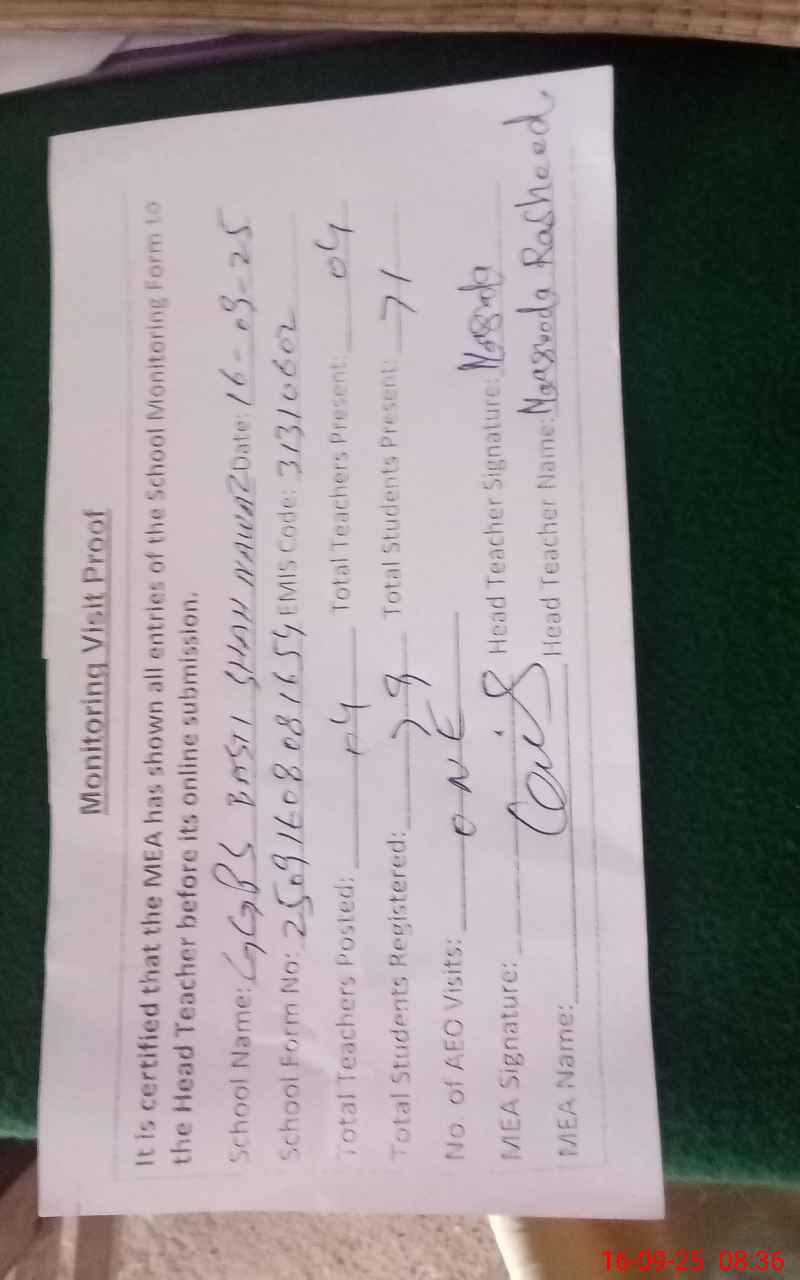 Monitoring Visit Proof
It is certified that the MEA has shown all entries of the School Monitoring Form to
the Head Teacher before its online submission.
School Name: GGPS BASTI SHAH NAWAZ Date: 16-09-25
School Form No: 2509160808081654 EMIS Code: 31310602
Total Teachers Posted: 04 Total Teachers Present: 04
Total Students Registered: 78 Total Students Present: 71
No. of AEO Visits: ONE
MEA Signature: Head Teacher Signature:
MEA Name: Head Teacher Name: Rasheed
16-09-25 08:36